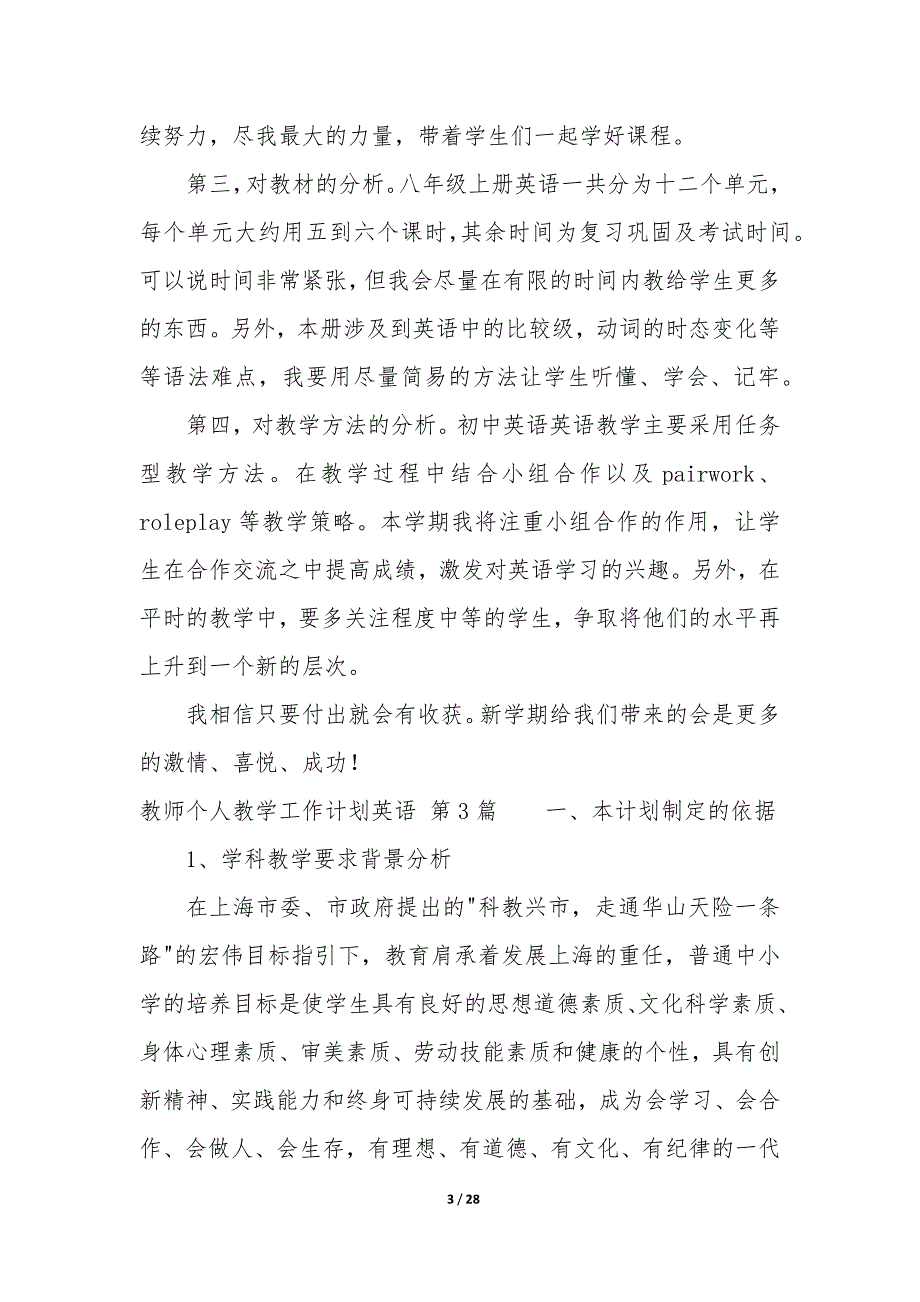 续努力，尽我最大的力量，带着学生们一起学好课程。
第三，对教材的分析。八年级上册英语一共分为十二个单元，
每个单元大约用五到六个课时，其余时间为复习巩固及考试时间。
可以说时间非常紧张，但我会尽量在有限的时间内教给学生更多
的东西。另外，本册涉及到英语中的比较级，动词的时态变化等
等语法难点，我要用尽量简易的方法让学生听懂、学会、记牢。
第四，对教学方法的分析。初中英语英语教学主要采用任务
型教学方法。在教学过程中结合小组合作以及 pairwork、
roleplay 等教学策略。本学期我将注重小组合作的作用，让学
生在合作交流之中提高成绩，激发对英语学习的兴趣。另外，在
平时的教学中，要多关注程度中等的学生，争取将他们的水平再
上升到一个新的层次。
我相信只要付出就会有收获。新学期给我们带来的会是更多
的激情、喜悦、成功！
教师个人教学工作计划英语 第 3 篇　　一、本计划制定的依据
1、学科教学要求背景分析
在上海市委、市政府提出的"科教兴市，走通华山天险一条
路"的宏伟目标指引下，教育肩承着发展上海的重任，普通中小
学的培养目标是使学生具有良好的思想道德素质、文化科学素质、
身体心理素质、审美素质、劳动技能素质和健康的个性，具有创
新精神、实践能力和终身可持续发展的基础，成为会学习、会合
作、会做人、会生存，有理想、有道德、有文化、有纪律的一代
3 / 28